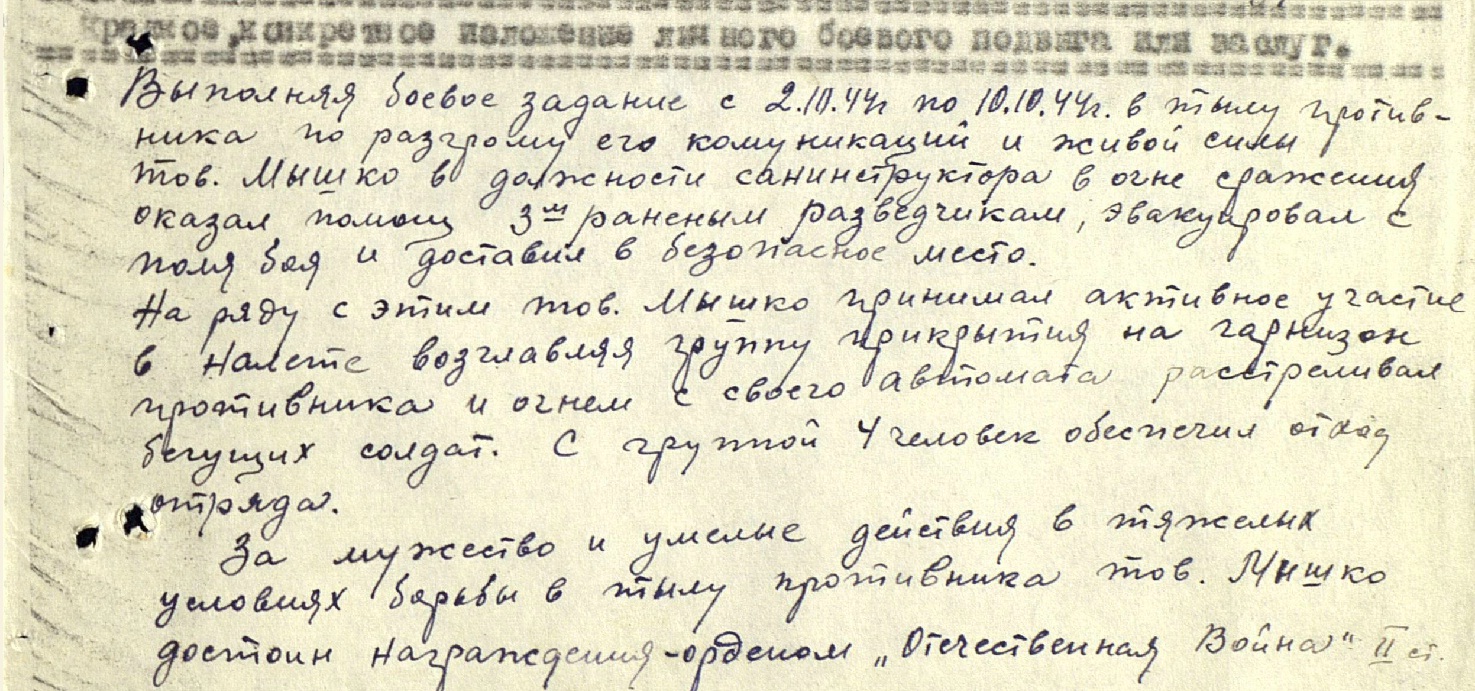 Краткое, конкретное изложение личного боевого подвига или заслуг.
Выполняя боевое задание с 2.10.44г по 10.10.44г. в тылу против-
ника по разгрому его комуникаций и живой силы
тов. Мышко в должности санинструктора в огне сражения
оказал помощ 3м раненым разведчикам, эвакуировал с
поля боя и доставил в безопасное место.
На ряду с этим тов. Мышко принимал активное участие
в налете возглавляя группу прикрытия на гарнизон
противника и огнем с своего автомата расстреливал
бегущих солдат. С группой 4 человек обеспечил отход
отряда.
За мужество и умелые действия в тяжелых
условиях борьбы в тылу противника тов. Мышко
достоин награждения-орденом „Отечественная Война" II ст.